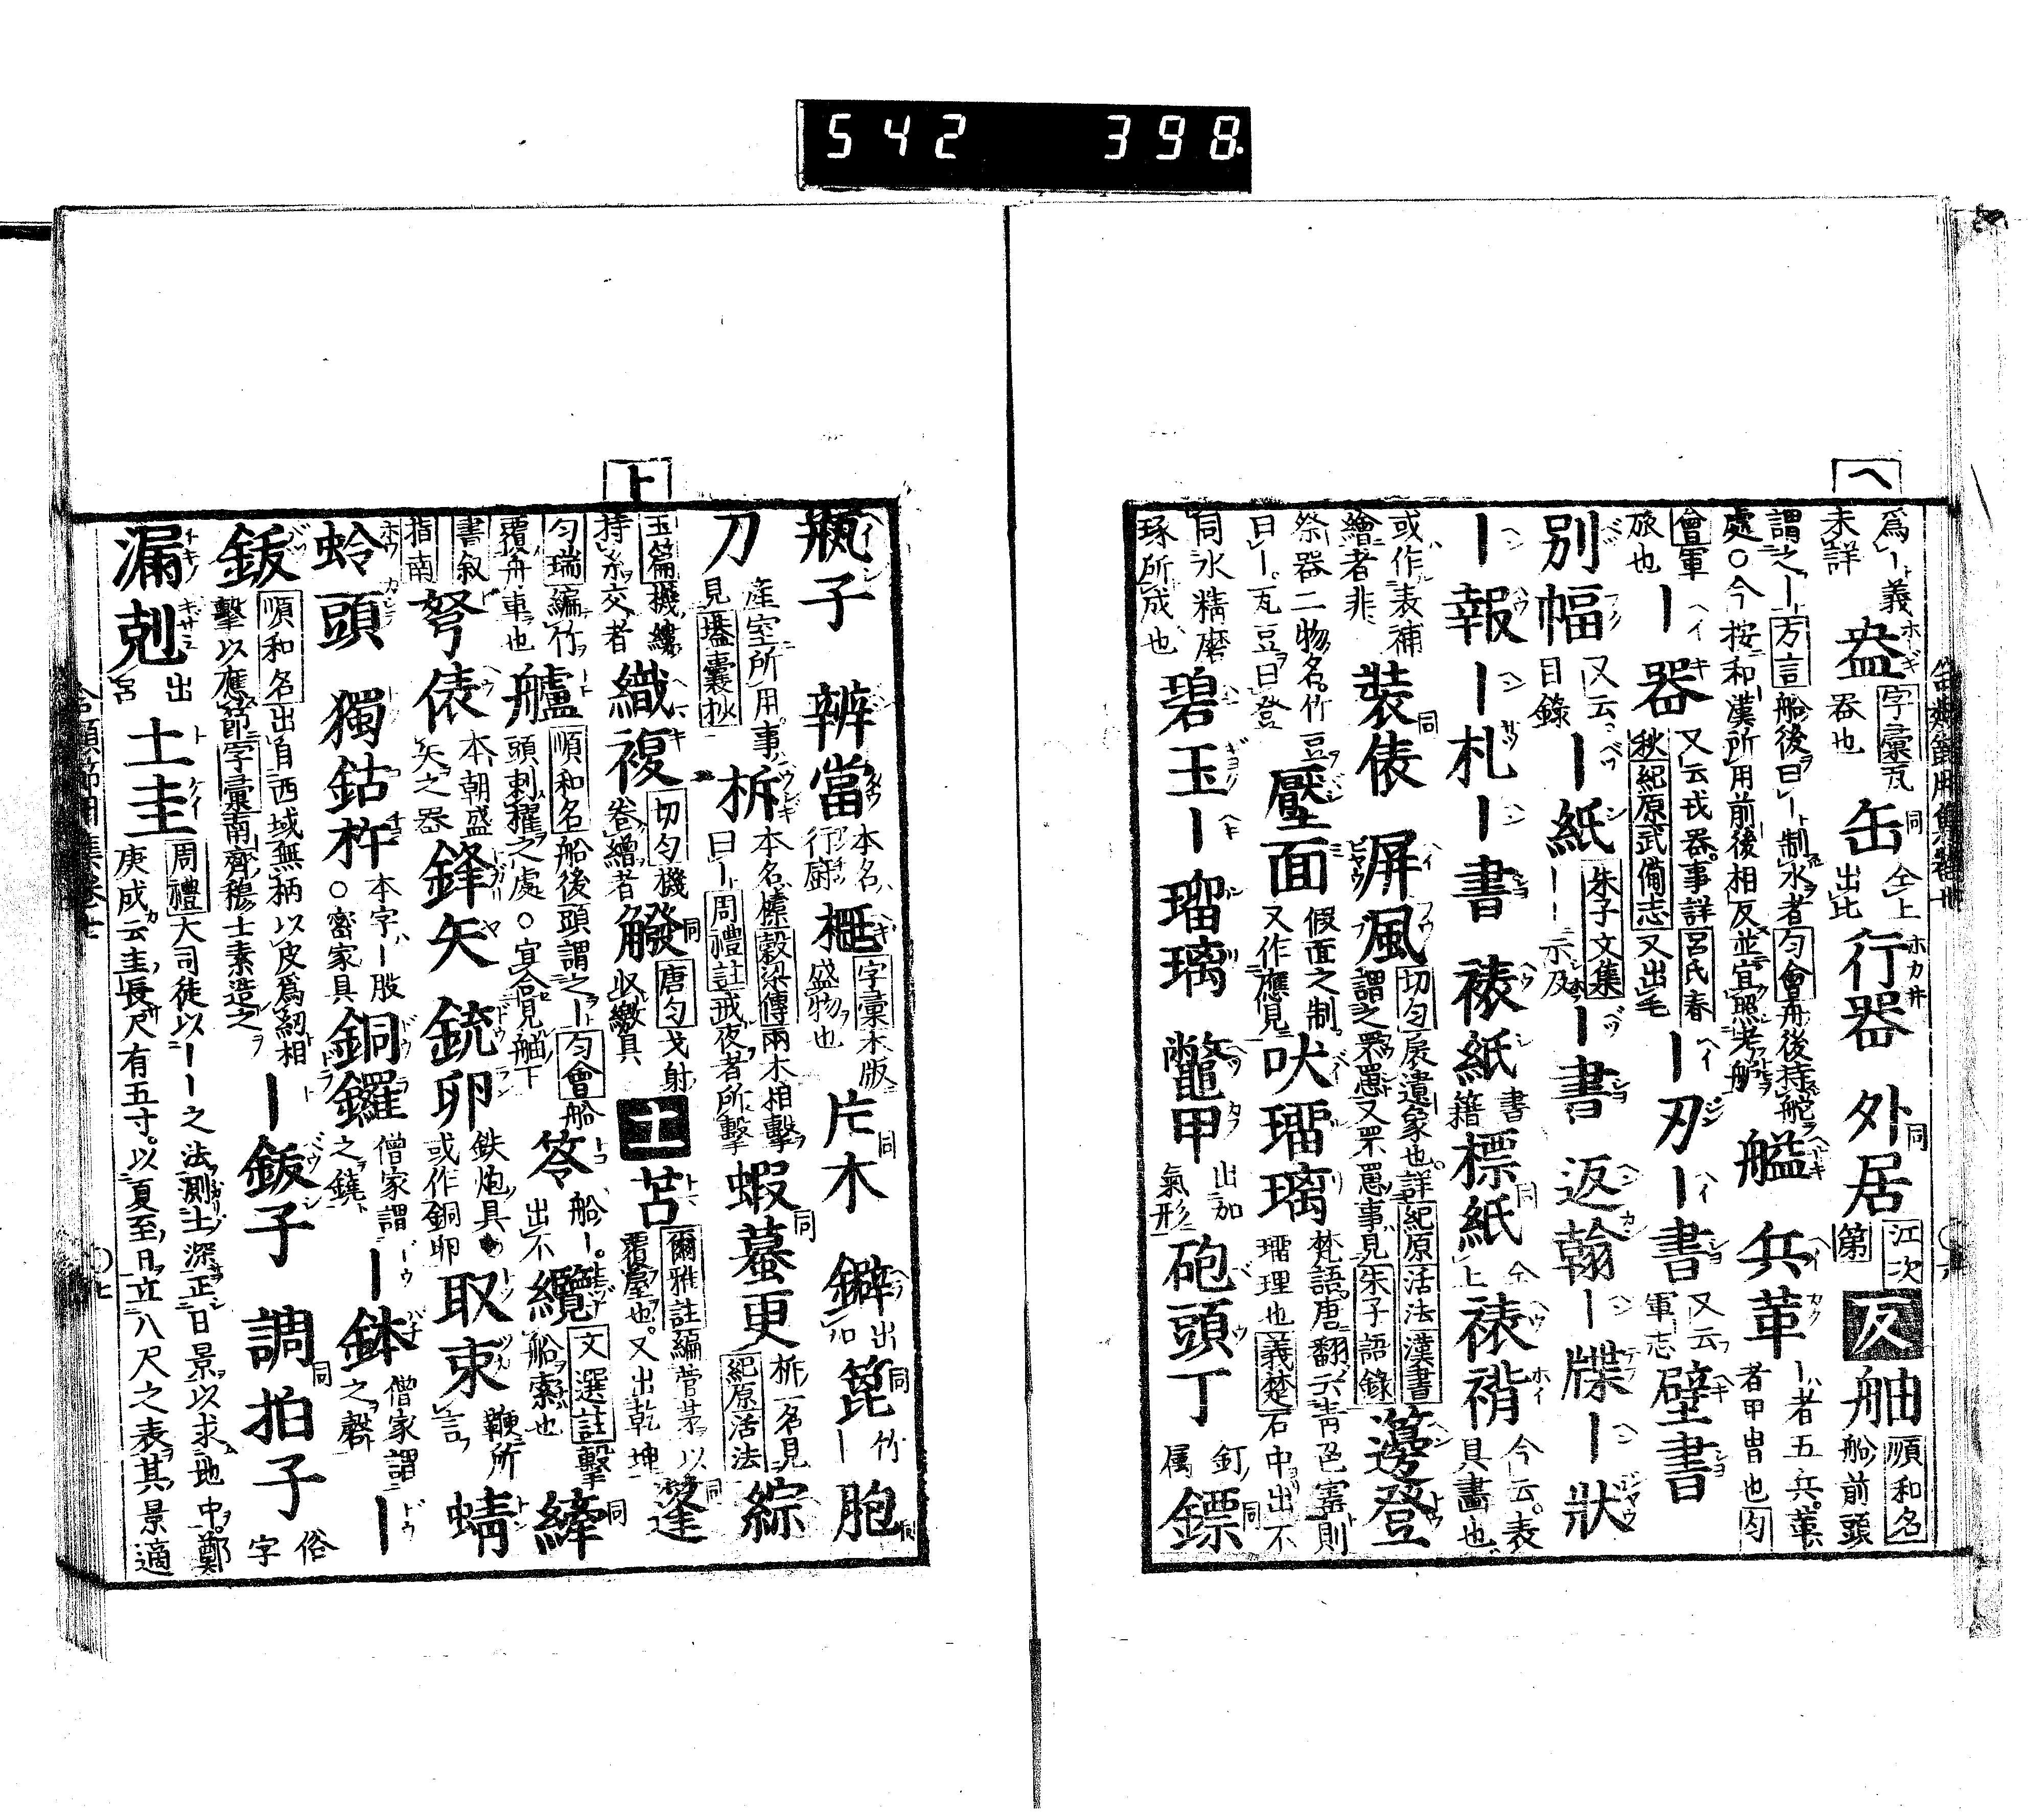 542 398
ヘ
爲ー義未詳 盎 字彙瓦器也 缶 同 仝上出比 行器 外居 同 江次第 反 舳 順和名船前頭
謂之ー方言船後曰ー制水者匀會舟後持舵處○今按和漢所用前後相反並宜照考 艦 兵革 ー者五兵革者甲冑也匀
會軍旅也 ー器 又云戎器事詳呂氏春秋紀原武備志又出毛 ー刃 ー書 又云軍志 壁書
別幅 又云目錄 ー紙 朱子文集ーー示及 ー書 返翰 ー牒 ー狀
ー報 ー札 ー書 裱紙 書籍 標紙 同 仝上 裱褙 今云表具畫也
或作表補繪者非 裝俵 同 屏風 切匀扆遺象也詳紀原活法漢書謂之罘罳又罘罳事見朱子語錄 籩登
祭器二物名竹豆曰ー瓦豆曰登 壓面 假面之制又作應見 吠瑠璃 梵語唐翻云青色寶則瑠理也義楚石中出不
同水精磨琢所成也 碧玉 ー瑠璃 鼈甲 出加氣形 砲頭丁 釘属 鏢 同
ト
瓶子 辨當 本名行廚 柂 字彙木版盛物也 片木 同 鐴 出加 箆 同 竹ー 胞
刀 産室所用事見壒囊抄 柝 本名榛穀梁傳兩木相擊曰ー周禮註戒夜者所擊 蝦蟇更 同 柝一名見紀原活法 綜
玉篇機縷持糸交者 織複 切匀機卷繒者 觱 同 唐匀弋射收繳具 土 苫 爾雅註編菅茅以覆屋也又出乾坤 篷 同
匀瑞編竹覆舟車也 艫 順和名船後頭謂之ー匀會船頭刺櫂之處○宜合見舳下 笭 船ー出不 纜 文選註擊船索也 縴 同
書叙指南 弩俵 本朝盛矢之器 鋒矢 銃卵 鉄炮具或作銅卵 取束 鞭所言 蜻
蛉頭 獨鈷杵 本字ー股○密家具 銅鑼 僧家謂之鐃 ー鉢 僧家謂之磬 ー
鈸 順和名出自西域無柄以皮爲紐相擊以應節字彙南齊穆士素造之 ー鈸子 調拍子 同 俗字
漏剋 出宮 土圭 周禮大司徒以ーー之法測土深正日景以求地中鄭庚成云圭長尺有五寸以夏至日立八尺之表其景適